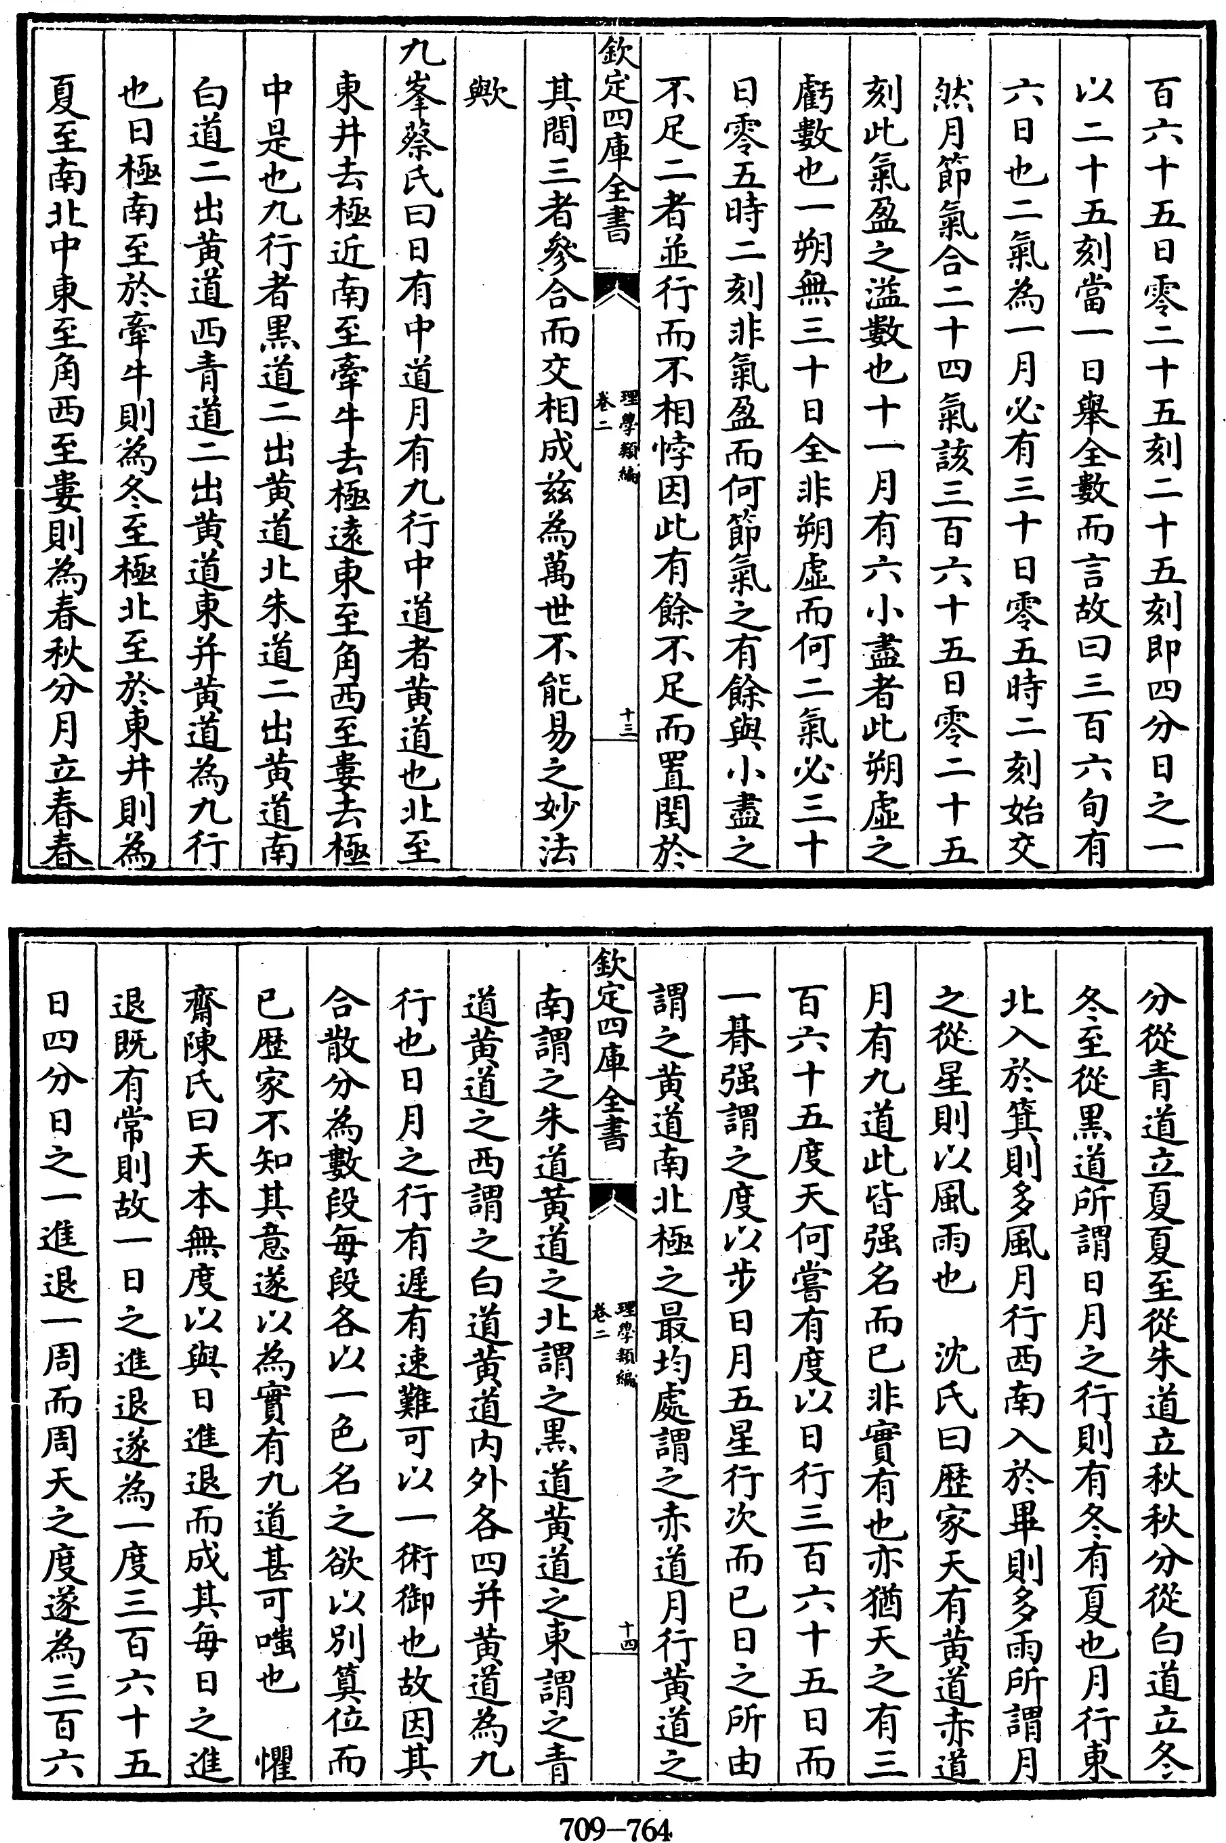 百六十五日零二十五刻二十五刻即四分日之一
以二十五刻當一日舉全數而言故曰三百六旬有
六日也二氣為一月必有三十日零五時二刻始交
然月節氣合二十四氣該三百六十五日零二十五
刻此氣盈之溢數也十一月有六小盡者此朔虛之
虧數也一朔無三十日全非朔虛而何二氣必三十
日零五時二刻非氣盈而何節氣之有餘與小盡之
不足二者並行而不相悖因此有餘不足而置閏於
欽定四庫全書
理學類編
卷二
十三
其間三者參合而交相成茲為萬世不能易之妙法
歟
九峯蔡氏曰日有中道月有九行中道者黃道也北至
東井去極近南至牽牛去極遠東至角西至婁去極
中是也九行者黑道二出黃道北朱道二出黃道南
白道二出黃道西青道二出黃道東并黃道為九行
也日極南至於牽牛則為冬至極北至於東井則為
夏至南北中東至角西至婁則為春秋分月立春春
分從青道立夏夏至從朱道立秋秋分從白道立冬
冬至從黑道所謂日月之行則有冬有夏也月行東
北入於箕則多風月行西南入於畢則多雨所謂月
之從星則以風雨也 沈氏曰歷家天有黃道赤道
月有九道此皆强名而已非實有也亦猶天之有三
百六十五度天何嘗有度以日行三百六十五日而
一朞强謂之度以步日月五星行次而已日之所由
謂之黃道南北極之最均處謂之赤道月行黃道之
欽定四庫全書
理學類編
卷二
十四
南謂之朱道黃道之北謂之黑道黃道之東謂之青
道黃道之西謂之白道黃道内外各四并黃道為九
行也日月之行有遲有速難可以一術御也故因其
合散分為數段每段各以一色名之欲以別算位而
已歷家不知其意遂以為實有九道甚可嗤也 懼
齋陳氏曰天本無度以與日進退而成其每日之進
退既有常則故一日之進退遂為一度三百六十五
日四分日之一進退一周而周天之度遂為三百六
709-764